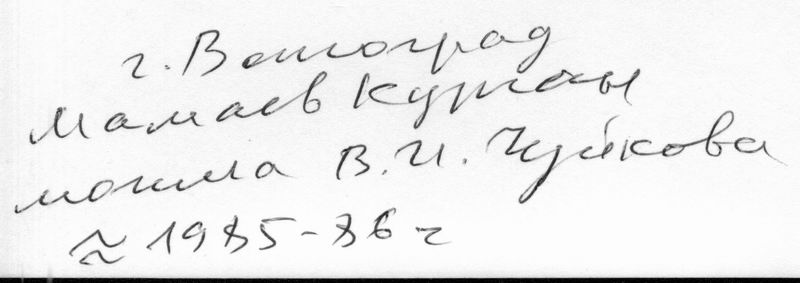 г. Волгоград
Мамаев Курган
могила В.И. Чуйкова
≈ 1985-86 г